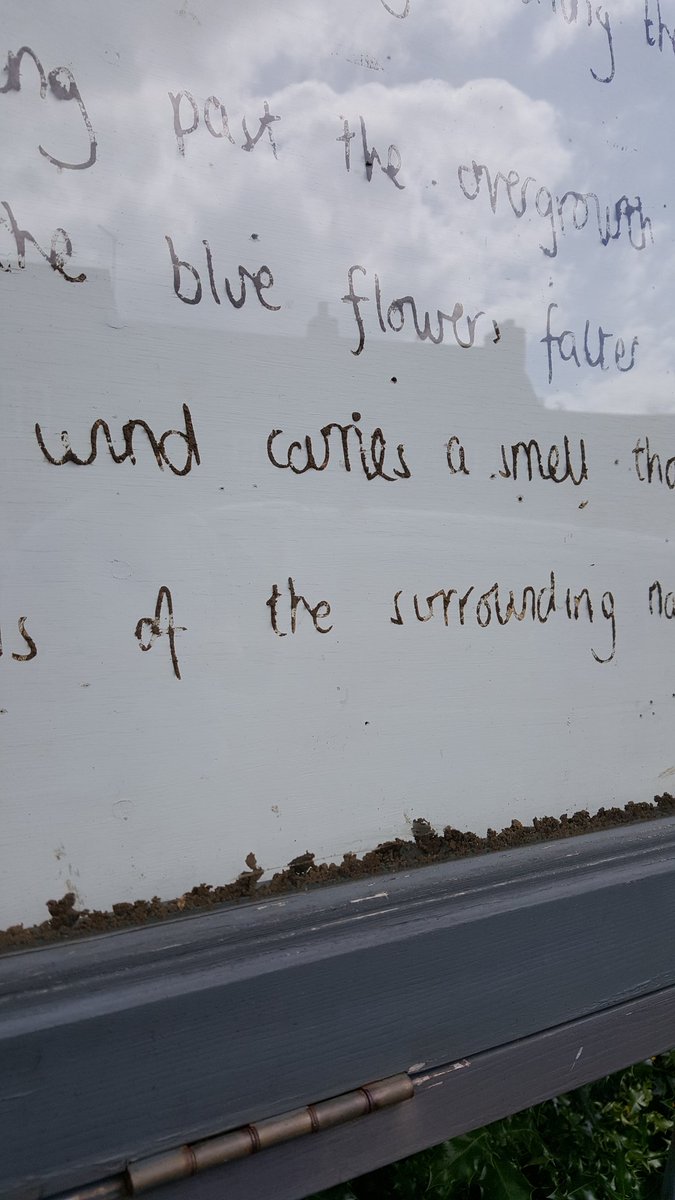 ng past the overgrowth
the blue flowers falter
wind carries a smell tha
s of the surrounding na